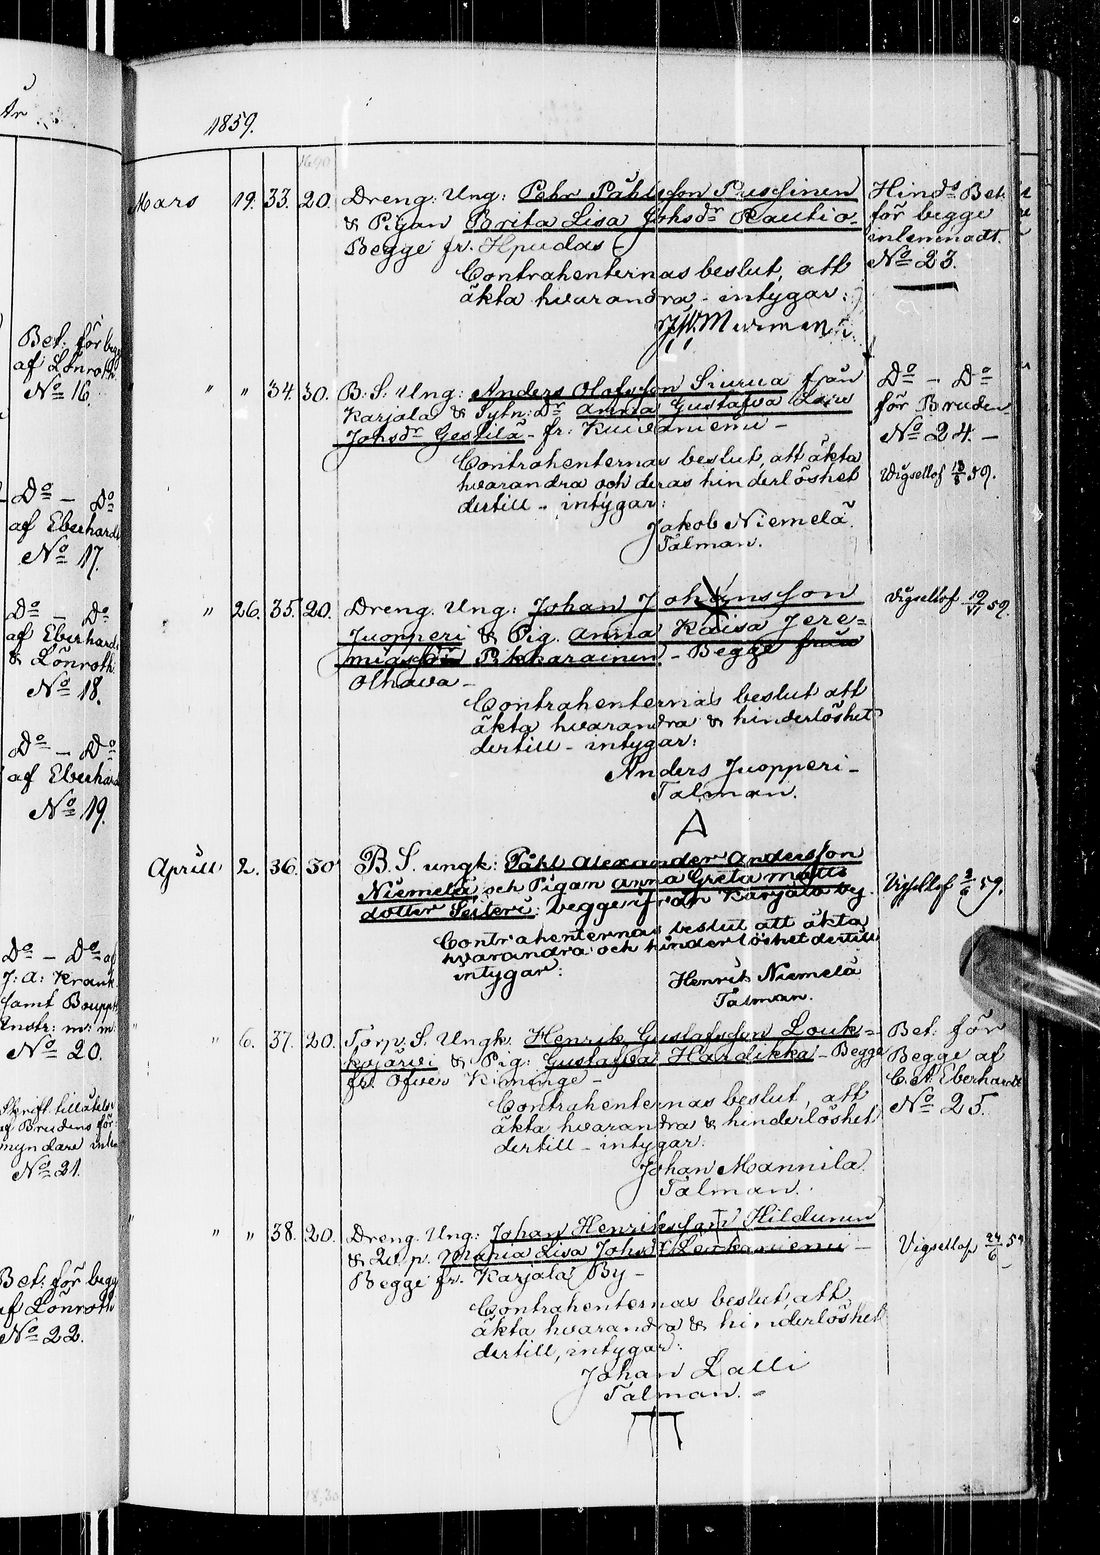 År
Bet: för begg
af Lönroth
No 16.
Do — Do
af Eberhardt
No 17.
Do — Do
af Eberhardt
& Lönroth
No 18.
Do — Do
af Eberhardt
No 19.
Do — Do af
J: A: Krank
samt Bouppt
Instr: m: m:
No 20.
Skrift. tillåtelse
af Brudens för-
myndare inlem
No 21.
Bet: för begg
af Lönroth
No 22.
1859.
Mars 19. 33. 20. Dreng. Ung: Pehr Påhlsson Pussinen
& Pigan Brita Lisa Johsdr Rautio
Begge fr. Hpudas
Contrahenternas beslut, att
äkta hvarandra - intygar:
Murman
Hinds Bet.
för begge
inlemnadt.
No 23.
" " 34. 30. B. S. Ung: Anders Olofsson Siurua från
Karjala & Sytn: Dr Anna Gustafva Lovis
Johsdr Gestilä - fr: Kuivaniemi -
Contrahenternas beslut, att äkta
hvarandra och deras hinderlöshet
dertill - intygar:
Jakob Niemelä
Talman.
Do — Do
för Bruden
No 24. —
Vigsellof 13/8 59.
" 26. 35. 20. Dreng. Ung: Johan Johansson
Juopperi & Pig. Anna Kaisa Jere-
miasdr Pikkarainen - Begge från
Olhava -
Contrahenternas beslut att
äkta hvarandra & hinderlöshet
dertill - intygar:
Anders Juopperi -
Talman.
Vigsellof 19/VI 59.
A
Aprill 2. 36. 30 B. S. ungk: Påhl Alexander Andersson
Niemelä och Pigan Anna Greta Matts
dotter Seiteri: begge ifrån Karjala by.
Contrahenternas beslut att äkta
hvarandra och hinderlöshet dertill
intygar:
Henrik Niemelä
Talman.
Vigsellof 3/6 59.
" 6. 37. 20. Torp. S. Ungk. Henrik Gustafsson Louk-
kojärvi & Pig: Gustafva Hardikka - Begge
fr. Öfver Kiminge -
Contrahenternas beslut, att
äkta hvarandra & hinderlöshet
dertill - intygar:
Johan Mannila
Talman.
Bet: för
Begge af
C. A. Eberhardt
No 25.
" " 38. 20. Dreng. Ung: Johan Henriksson Hildunen
& Maria Lisa Johsdr
Begge fr. Karjala By -
Contrahenternas beslut, att
äkta hvarandra & hinderlöshet
dertill, intygar:
Johan Lalli
Talman. -
Vigsellof 24/6 59